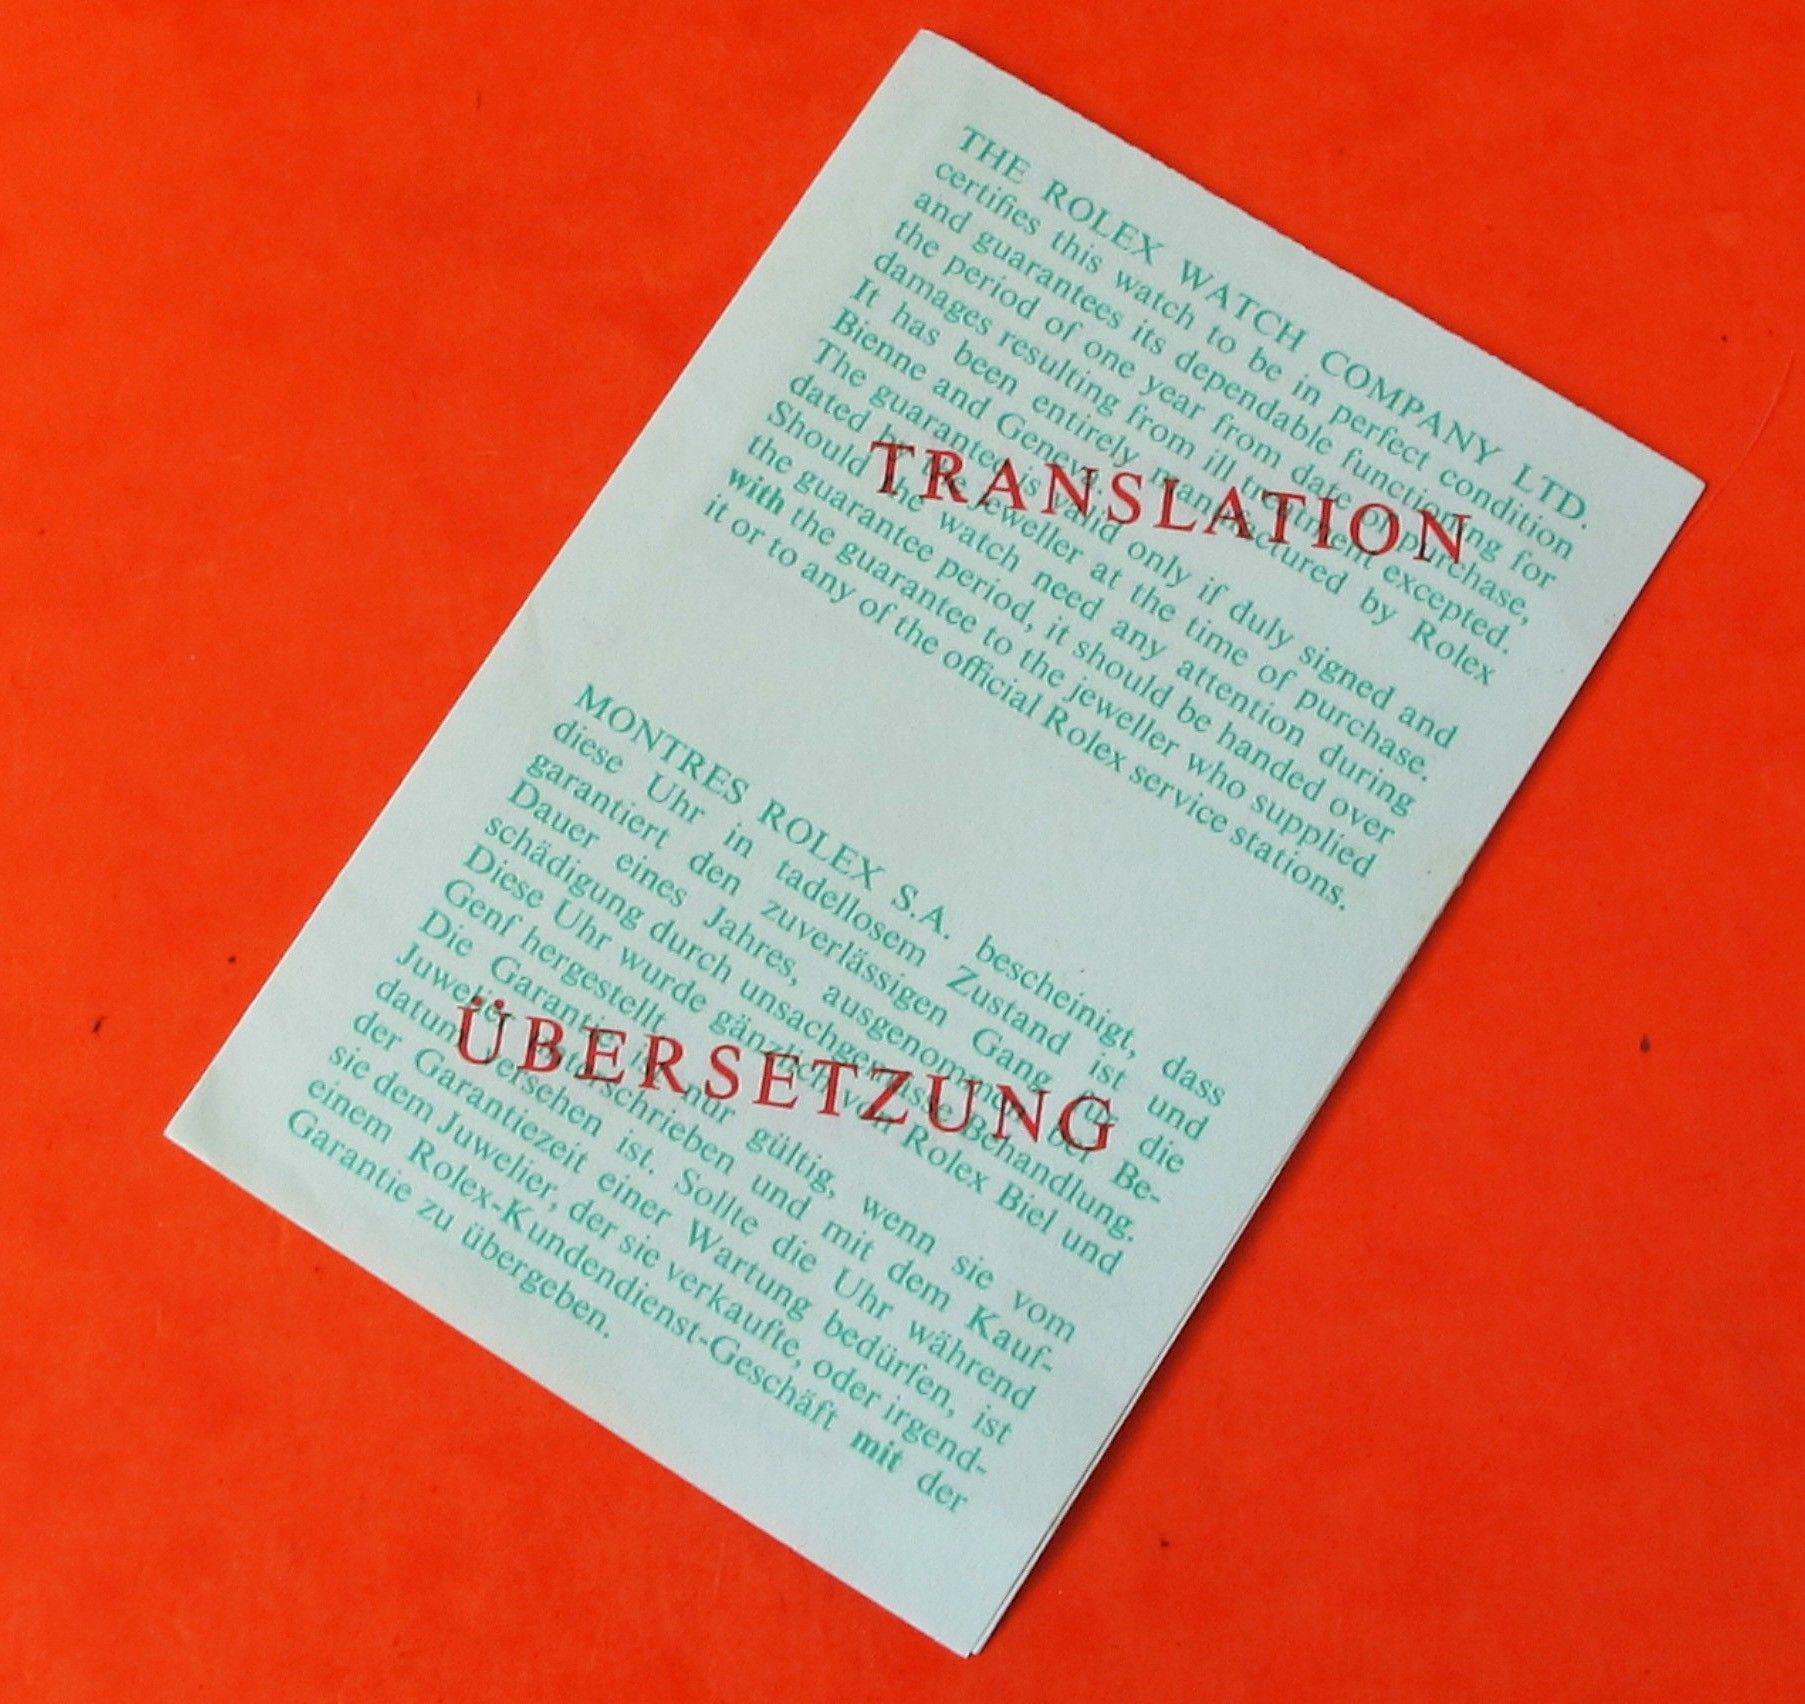 THE ROLEX WATCH COMPANY LTD.
certifies this watch to be in perfect condition
and guarantees its dependable functioning for
the period of one year from date of purchase,
damages resulting from ill treatment excepted.
It has been entirely manufactured by Rolex
Bienne and Geneva.
The guarantee is valid only if duly signed and
dated by the jeweller at the time of purchase.
Should the watch need any attention during
the guarantee period, it should be handed over
with the guarantee to the jeweller who supplied
it or to any of the official Rolex service stations.
TRANSLATION
MONTRES ROLEX S.A. bescheinigt, dass
diese Uhr in tadellosem Zustand ist und
garantiert den zuverlässigen Gang für die
Dauer eines Jahres, ausgenommen bei Be-
schädigung durch unsachgemässe Behandlung.
Diese Uhr wurde gänzlich von Rolex Biel und
Genf hergestellt.
Die Garantie ist nur gültig, wenn sie vom
Juwelier unterschrieben und mit dem Kauf-
datum versehen ist. Sollte die Uhr während
der Garantiezeit einer Wartung bedürfen, ist
sie dem Juwelier, der sie verkaufte, oder irgend-
einem Rolex-Kundendienst-Geschäft mit der
Garantie zu übergeben.
ÜBERSETZUNG